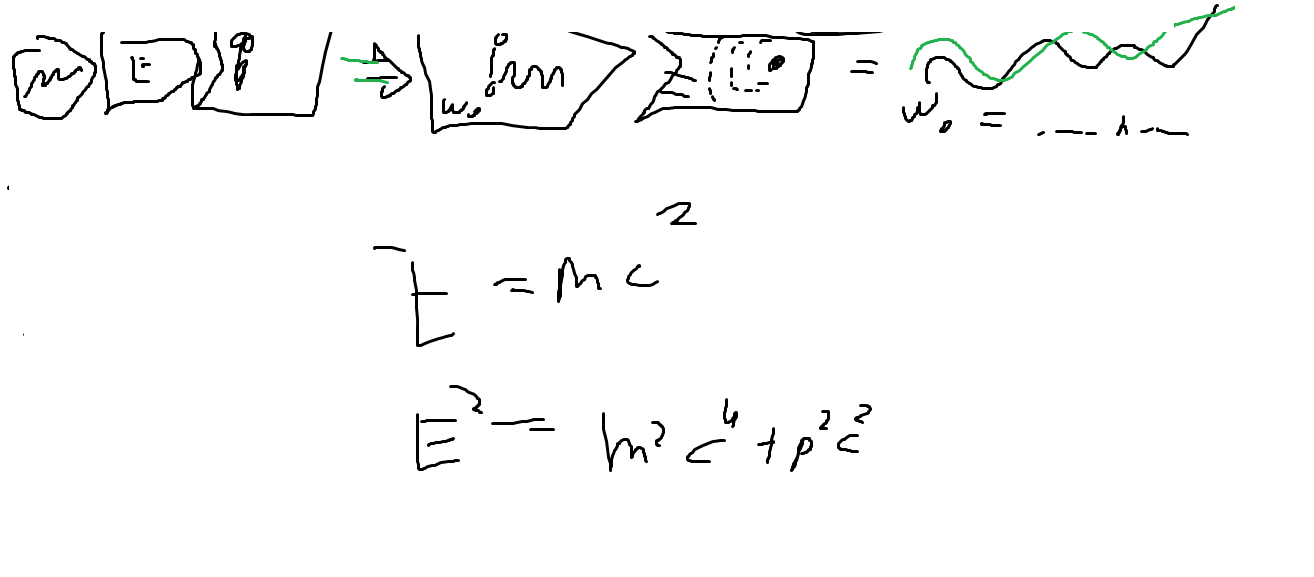 m E
w₀
=
w₀ =
E = mc²
E² = m²c⁴ + p²c²